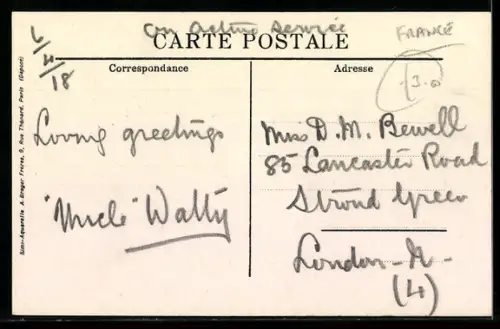 on active service
FRANCE
CARTE POSTALE
6/4/18
Correspondance
Adresse
3.0
Loving greetings
"Uncle" Watty
Miss D. M. Bewell
85 Lancaster Road
Stroud Green
London - N -
(4)
Simi-Aquarelle A. Breger Frères, 9, Rue Thénard, Paris (Déposé)